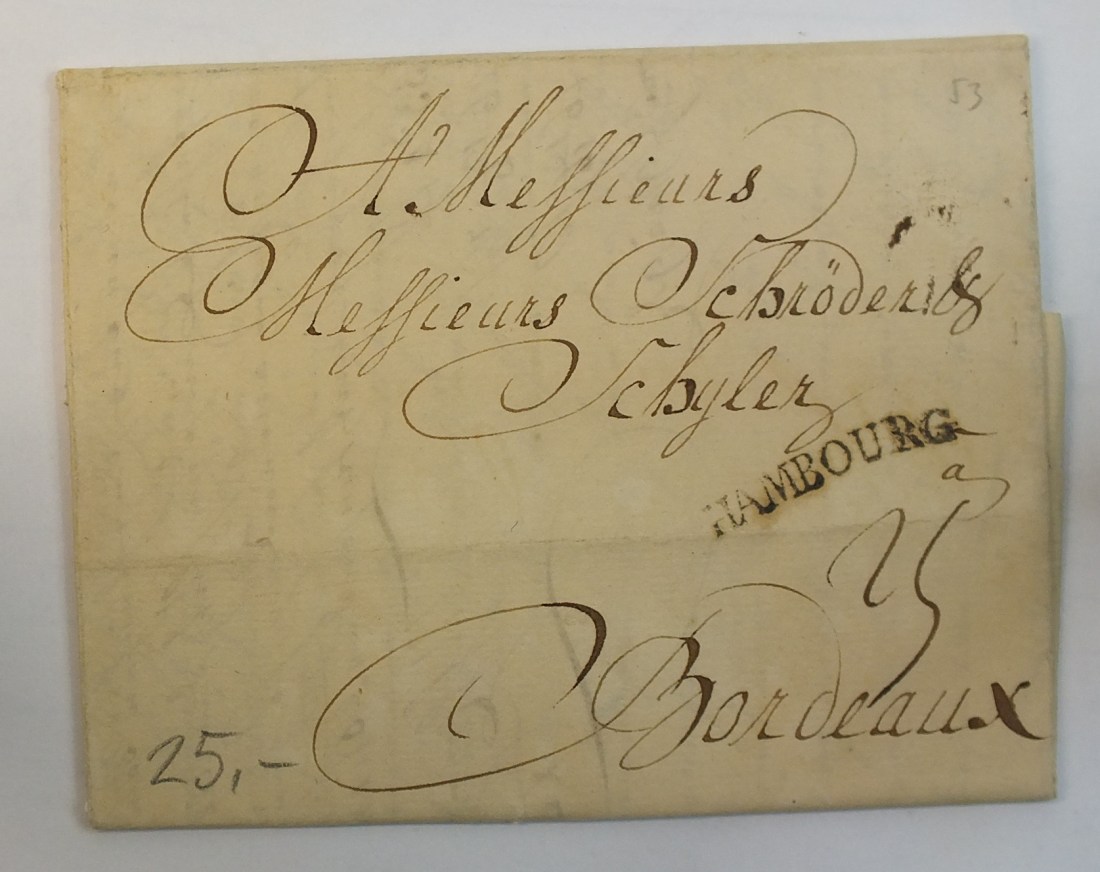 53
A Messieurs
Messieurs Schröder &
Schyler
HAMBOURG
a
25
Bordeaux
25,-